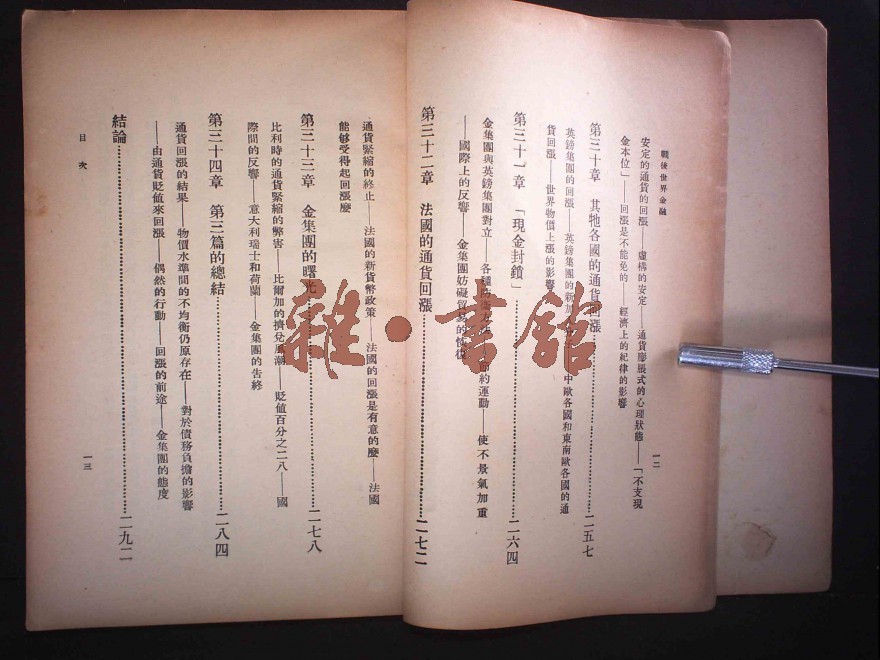 戰後世界金融
安定的通貨的回漲——虛構的安定——通貨膨脹式的心理狀態——「不支現
金本位」——回漲是不能免的——經濟上的紀律的影響
第三十章 其牠各國的通貨回漲……二五七
英鎊集團的回漲——英鎊集團的新加
中歐各國和東南歐各國的通
貨回漲——世界物價上漲的影響
第三十一章 「現金封鎖」……二六四
金集團與英鎊集團對立——各種
節約運動——使不景氣加重
——國際上的反響——金集團妨礙貿易的恢復
第三十二章 法國的通貨回漲……二七二
一二
通貨緊縮的終止——法國的新貨幣政策——法國的回漲是有意的麼——法國
能够受得起回漲麼
第三十三章 金集團的曙光……二七八
比利時的通貨緊縮的弊害——比爾加的擠兌風潮——貶值百分之二八——國
際間的反響——意大利瑞士和荷蘭——金集團的告終
第三十四章 第三篇的總結……二八四
通貨回漲的結果——物價水準間的不均衡仍原存在——對於債務負擔的影響
——由通貨貶值來回漲——偶然的行動——回漲的前途——金集團的態度
結論……二九二
目次
一三
雜·書館